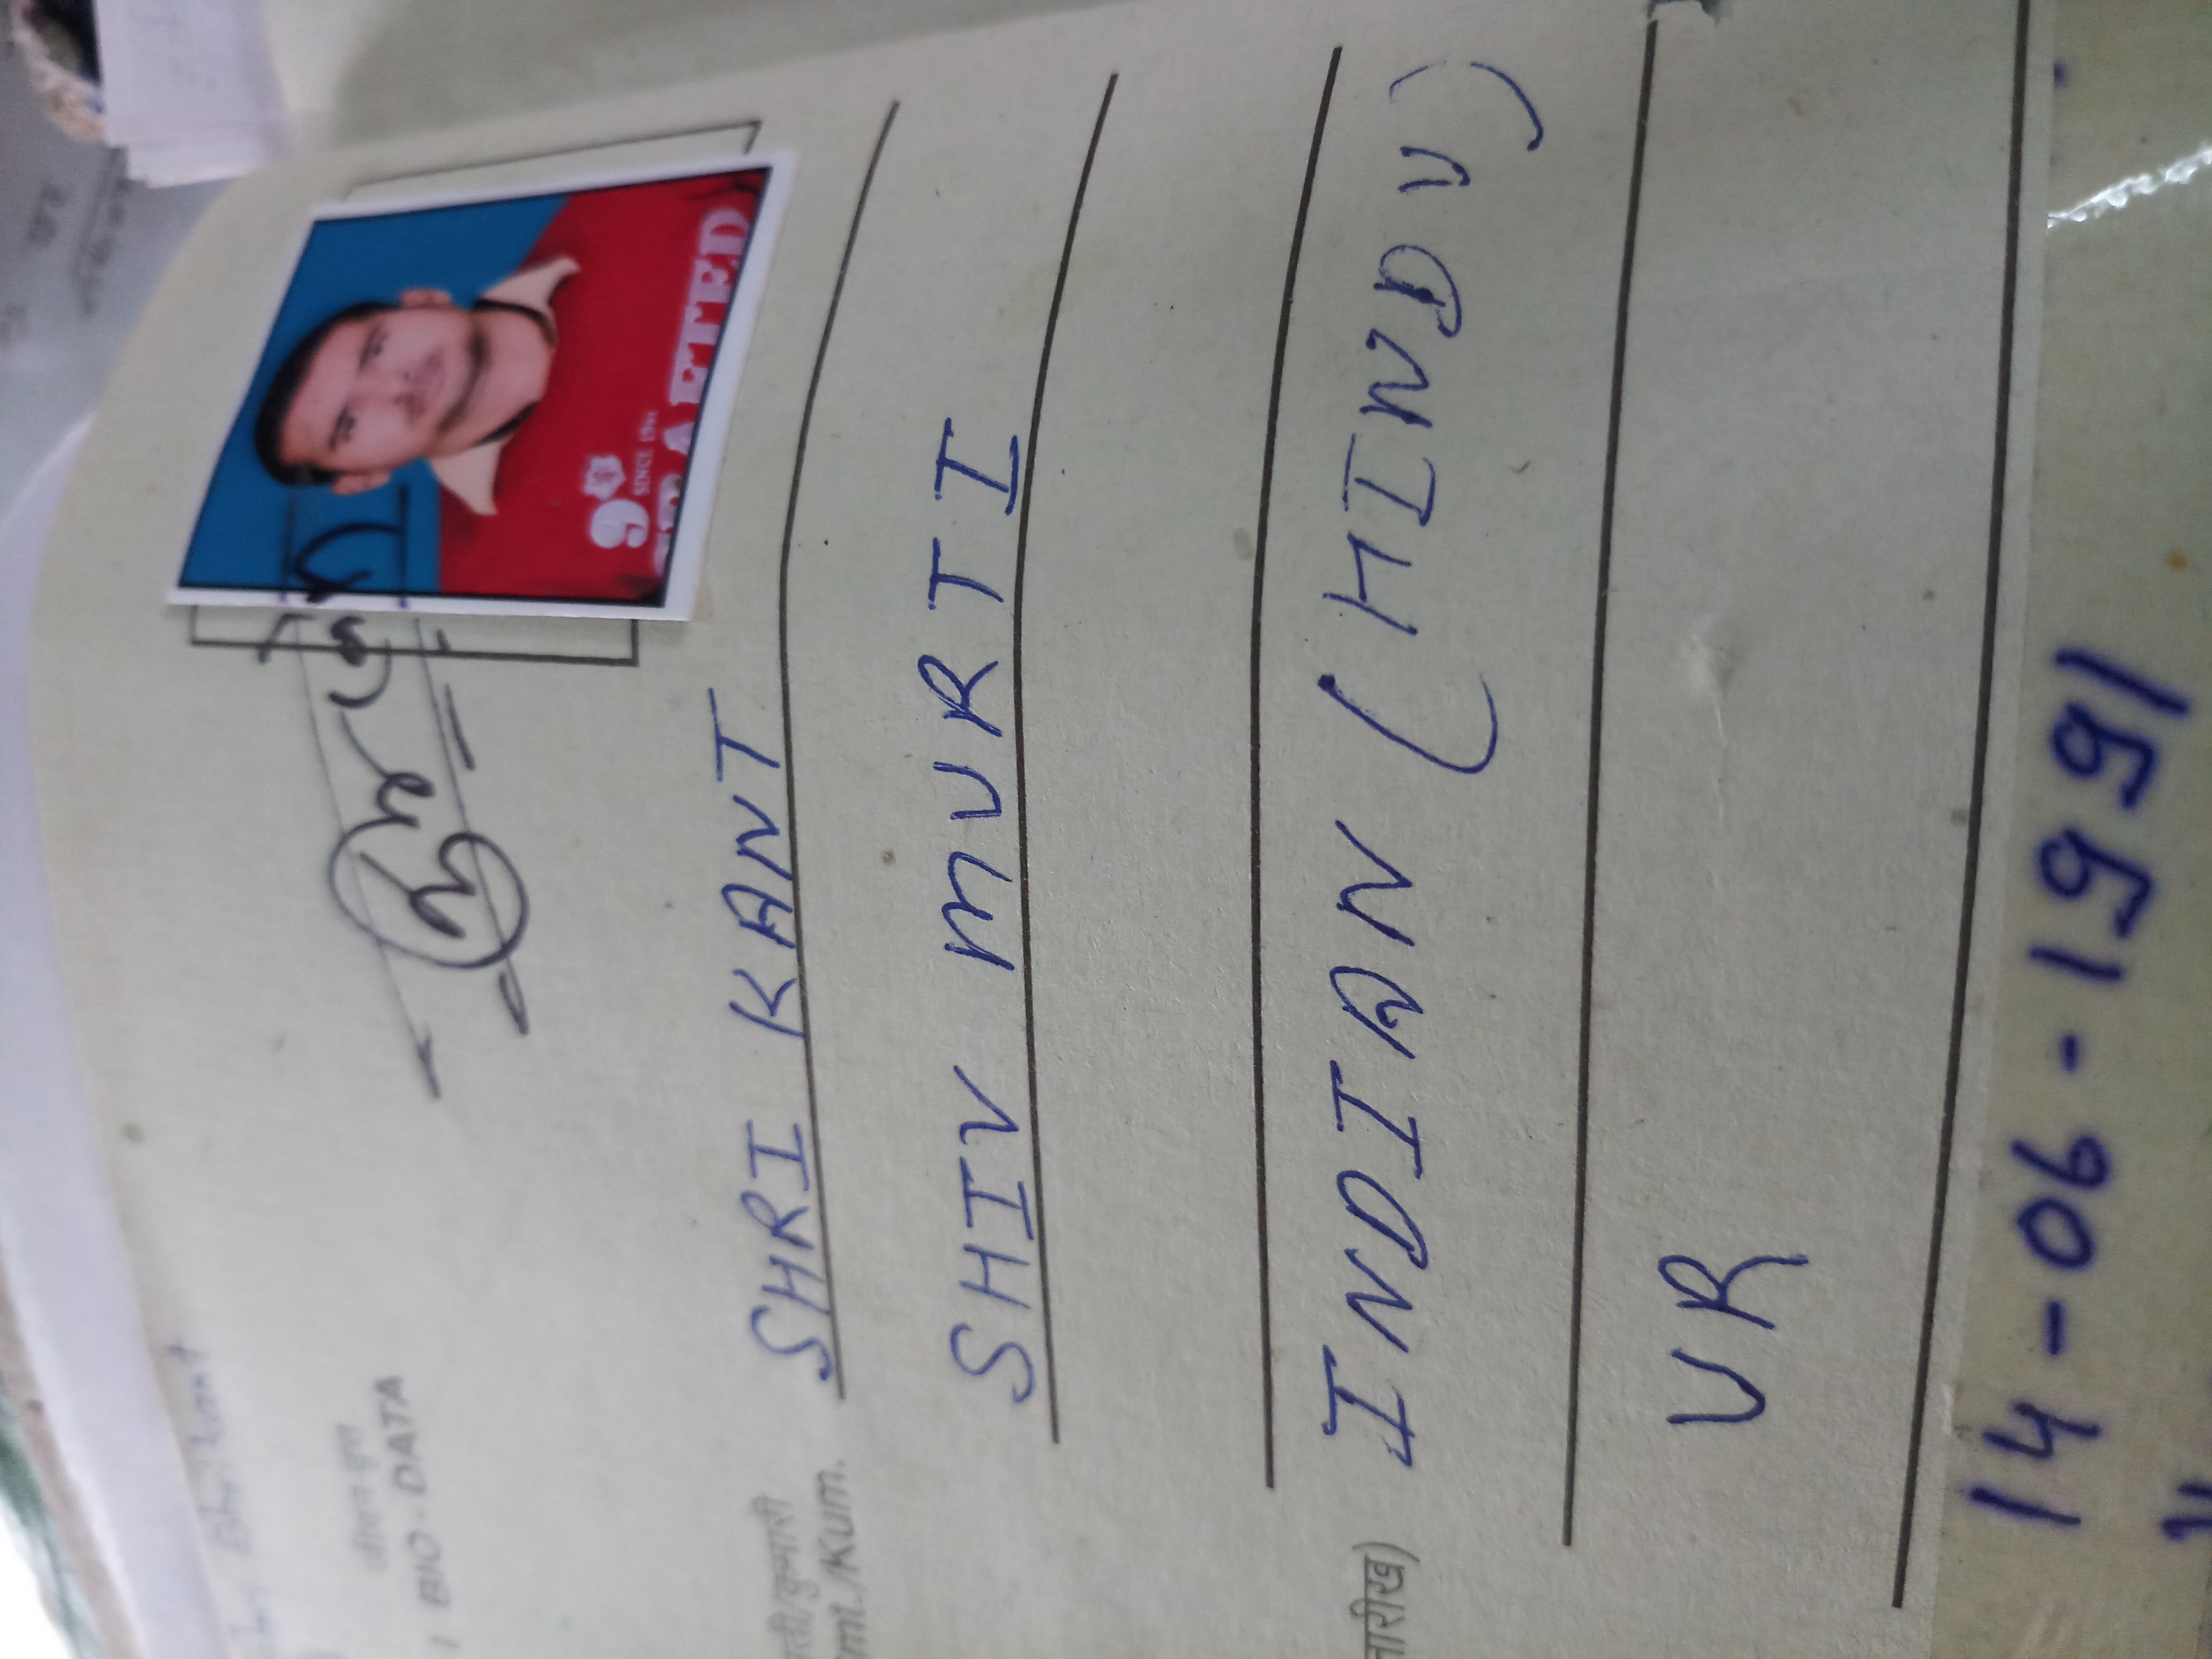 Shrikant
जीवन-वृत्त
BIO-DATA
9
SINCE 1991
CRAFTED
मती/कुमारी
Smt./Kum.
SHRI KANT
SHIV MURTI
तारीख)
INDIAN (HINDU)
UR
14-06-1991